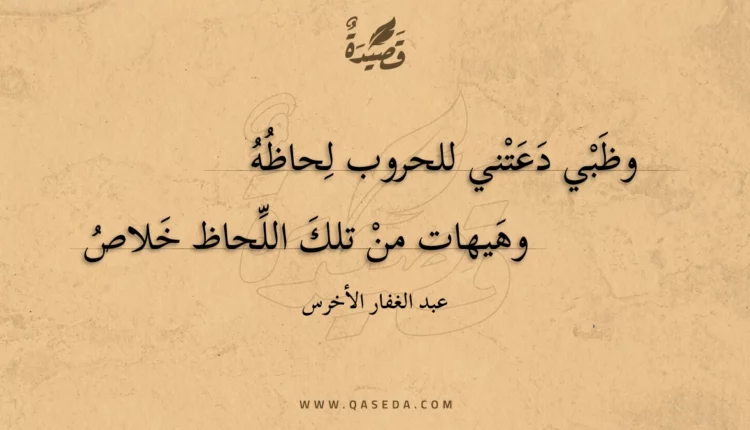 قَصِيْدَةٌ
وظَبْي دَعَتْني للحروب لِحاظُهُ
وهَيهات منْ تلكَ اللِّحاظ خَلاصُ
عبد الغفار الأخرس
WWW.QASEDA.COM